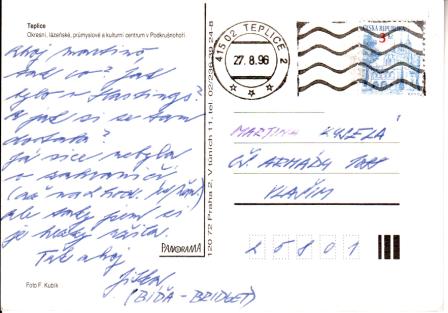 Teplice
Okresní, lázeňské, průmyslové a kulturní centrum v Podkrušnohoří
Ahoj Martino
tak co? Jak
bylo v Hastings?
A jak si se tam
dostala?
Já sice nebyla
v zahraničí
ale tady jsem si
je hezky užila.
Tak ahoj
Jitka
(BÍĎA-BRIDGET)
Foto F. Kubík
PANORAMA
120 72 Praha 2, V tůních 11, tel. 02/296
415 02 TEPLICE 2
27.8.96
ČESKÁ REPUBLIKA
3
MARTINA KUZELA
ČS. ARMÁDY
VLAŠIM
25801